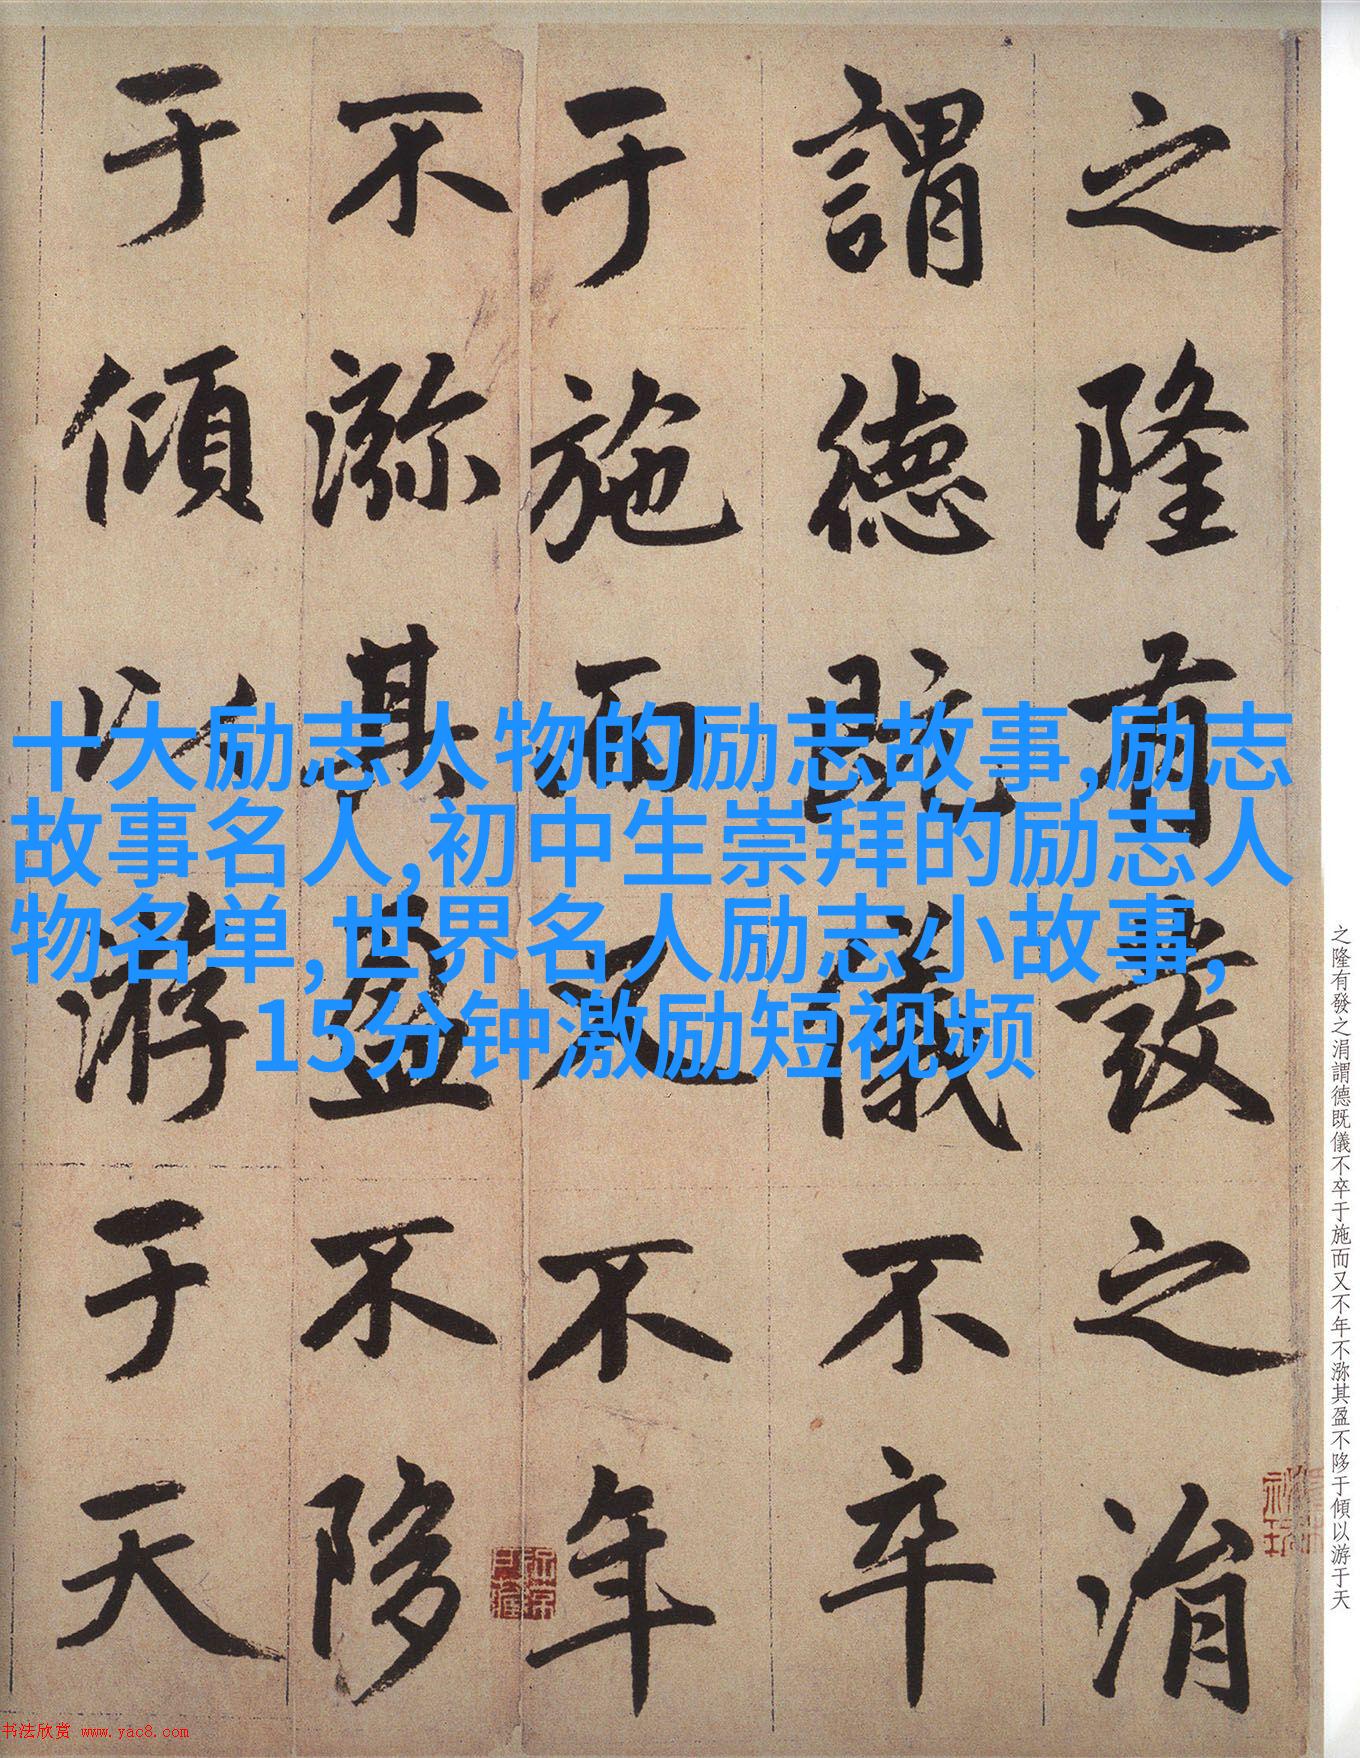 之隆有發之涓
謂德既儀不卒
于施而又不年
不㳽其盈不陊
于傾以游于天
十大励志人物的励志故事,励志
故事名人,初中生崇拜的励志人
物名单,世界名人励志小故事,
15分钟激励短视频
之隆有發之涓謂德既儀不卒于施而又不年不㳽其盈不陊于傾以游于天
书法欣赏 www.yac8.com